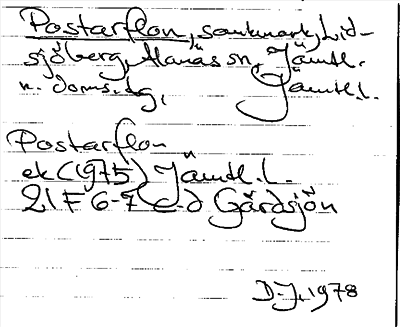 Postarflon, sankmark, Lid-
sjöberg, Alanäs sn, Jämtl.
n. doms.sg, Jämtl.l.
Postarflon
ek (1975) Jämtl.l.
21F 6-7 c-d Gårdsjön
D-J. 1978